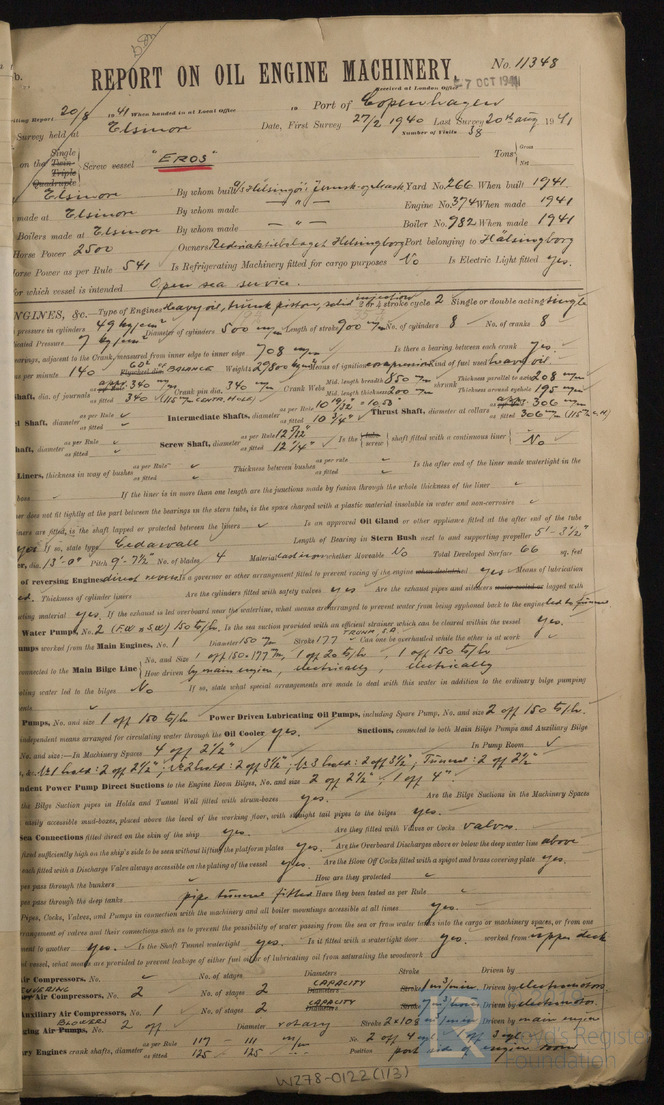 REPORT ON OIL ENGINE MACHINERY.
No. 11348
Received at London Office
7 OCT 1941
Writing Report 20/8 1941 When handed in at Local Office 19 Port of Copenhagen
Survey held at Elsinore Date, First Survey 27/2 1940 Last Survey 20th aug 1941
Number of Visits 38
on the Single Twin Triple Quadruple Screw vessel "EROS" Tons Gross Net
Elsinore By whom built A/S Helsingörs Yard No. 266 When built 1941
made at Elsinore By whom made — " — Engine No. 374 When made 1941
Boilers made at Elsinore By whom made — " — Boiler No. 982 When made 1941
Horse Power 2500 Owners Rederiaktiebolaget Helsingborg Port belonging to Hälsingborg
Horse Power as per Rule 541 Is Refrigerating Machinery fitted for cargo purposes No Is Electric Light fitted yes.
for which vessel is intended Open sea service.
ENGINES, &c.—Type of Engines Heavy oil, trunk piston, solid injection 2 or 4 stroke cycle 2 Single or double acting single
pressure in cylinders 49 kg/cm² Diameter of cylinders 500 m/m Length of stroke 900 m/m No. of cylinders 8 No. of cranks 8
Indicated Pressure 7 kg/cm²
bearings, adjacent to the Crank, measured from inner edge to inner edge 708 m/m Is there a bearing between each crank Yes.
per minute 140 Flywheel dia. BALANCE Weight Means of ignition compression Kind of fuel used heavy oil.
Shaft, dia. of journals as fitted 340 Crank pin dia. 340 m/m Crank Webs Mid. length breadth 850 m/m Mid. length thickness 200 m/m shrunk Thickness parallel to axis 208 m/m Thickness around eyehole 195 m/m
Shaft, diameter as per Rule as fitted Intermediate Shafts, diameter as per Rule as fitted 10 3/4" Thrust Shaft, diameter at collars as fitted 306 m/m
Shaft, diameter as per Rule as fitted Screw Shaft, diameter as per Rule as fitted 12 1/4" Is the screw shaft fitted with a continuous liner No
Liners, thickness in way of bushes as per Rule as fitted Thickness between bushes as per rule as fitted Is the after end of the liner made watertight in the
boss If the liner is in more than one length are the junctions made by fusion through the whole thickness of the liner
does not fit tightly at the part between the bearings in the stern tube, is the space charged with a plastic material insoluble in water and non-corrosive
liners are fitted, is the shaft lapped or protected between the liners Is an approved Oil Gland or other appliance fitted at the after end of the tube
yes If so, state type Cedarwall Length of Bearing in Stern Bush next to and supporting propeller 5'-3½"
dia. 13'-0" Pitch 9'-7½" No. of blades 4 Material cast iron whether Moveable No Total Developed Surface 66 sq. feet
of reversing Engines direct reversing Is a governor or other arrangement fitted to prevent racing of the engine when declutched yes Means of lubrication
Thickness of cylinder liners Are the cylinders fitted with safety valves yes Are the exhaust pipes and silencers water cooled or lagged with
material yes. If the exhaust is led overboard near the waterline, what means are arranged to prevent water from being syphoned back to the engine led to funnel
Water Pumps, No. 2 (F.W & S.W) 150 to/hr. Is the sea suction provided with an efficient strainer which can be cleared within the vessel yes.
Pumps worked from the Main Engines, No. 1 Diameter 150 m/m Stroke 177 Can one be overhauled while the other is at work
connected to the Main Bilge Line No. and Size 1 off 150 × 177 m/m, 1 off 20 to/hr, 1 off 150 to/hr
How driven by main engine, electrically, electrically
cooling water led to the bilges No If so, state what special arrangements are made to deal with this water in addition to the ordinary bilge pumping
Pumps, No. and size 1 off 150 to/hr Power Driven Lubricating Oil Pumps, including Spare Pump, No. and size 2 off 150 to/hr.
independent means arranged for circulating water through the Oil Cooler yes. Suctions, connected to both Main Bilge Pumps and Auxiliary Bilge
No. and size:—In Machinery Spaces 4 off 2½" In Pump Room
No 1 hold: 2 off 2½", No 2 hold: 2 off 3½", No 3 hold: 2 off 3½", Tunnel: 2 off 2½"
Power Pump Direct Suctions to the Engine Room Bilges, No. and size 2 off 2½", 1 off 4".
the Bilge Suction pipes in Holds and Tunnel Well fitted with strum-boxes yes. Are the Bilge Suctions in the Machinery Spaces
easily accessible mud-boxes, placed above the level of the working floor, with straight tail pipes to the bilges yes.
Sea Connections fitted direct on the skin of the ship yes. Are they fitted with Valves or Cocks valves.
fixed sufficiently high on the ship's side to be seen without lifting the platform plates yes. Are the Overboard Discharges above or below the deep water line above
each fitted with a Discharge Valve always accessible on the plating of the vessel yes Are the Blow Off Cocks fitted with a spigot and brass covering plate yes.
pipes pass through the bunkers How are they protected
pipes pass through the deep tanks pipe tunnel fitted Have they been tested as per Rule
Pipes, Cocks, Valves, and Pumps in connection with the machinery and all boiler mountings accessible at all times yes.
arrangement of valves and their connections such as to prevent the possibility of water passing from the sea or from water tanks into the cargo or machinery spaces, or from one
to another yes. Is the Shaft Tunnel watertight yes. Is it fitted with a watertight door yes. worked from upper deck
vessel, what means are provided to prevent leakage of either fuel oil or lubricating oil from saturating the woodwork
Air Compressors, No. No. of stages Diameters Stroke Driven by
Air Compressors, No. 2 No. of stages 2 Diameters CAPACITY Stroke Driven by electromotors.
Auxiliary Air Compressors, No. 1 No. of stages 2 Diameters CAPACITY Stroke Driven by electromotor.
Air Pumps, BLOWERS No. 2 off Diameter rotary Stroke Driven by main engine
Engines crank shafts, diameter as per Rule 117 111 m/m as fitted 125 125 No. Position port side of engine room
Lloyd's Register
Foundation
W278-0122 (1/3)